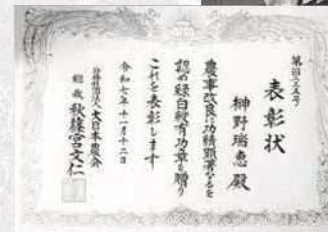 表彰状
榊野瑞恵殿
農事改良に功績顕著なるを
認め緑白綬有功章を贈り
これを表彰します
令和七年十一月十二日
公益社団法人大日本農会
総裁秋篠宮文仁